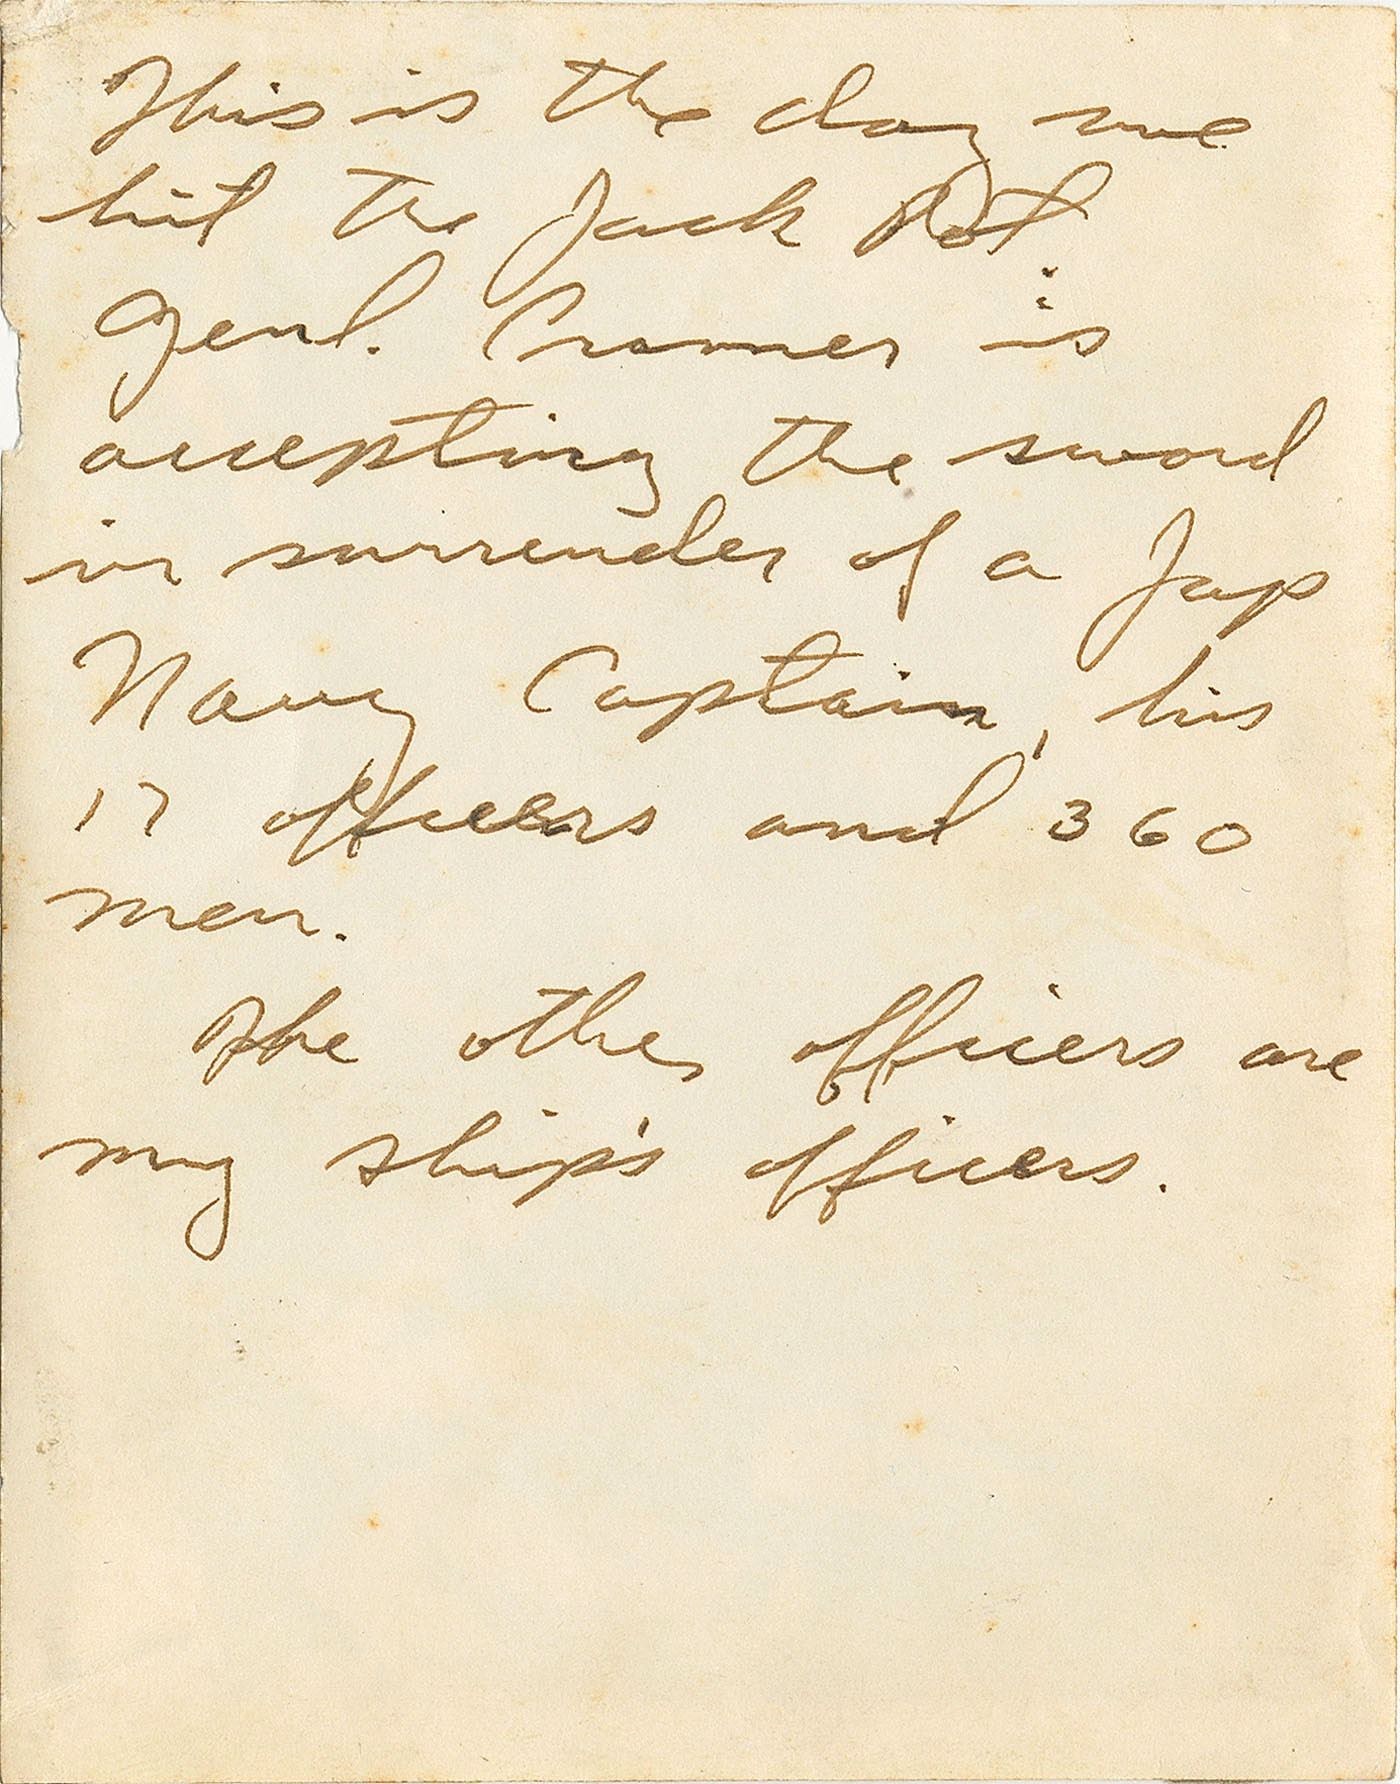 This is the day we
hit the Jack Pot.
Genl. Cramer is
accepting the sword
in surrender of a Jap
Navy Captain, his
17 officers and 360
men.
The other officers are
my ship's officers.